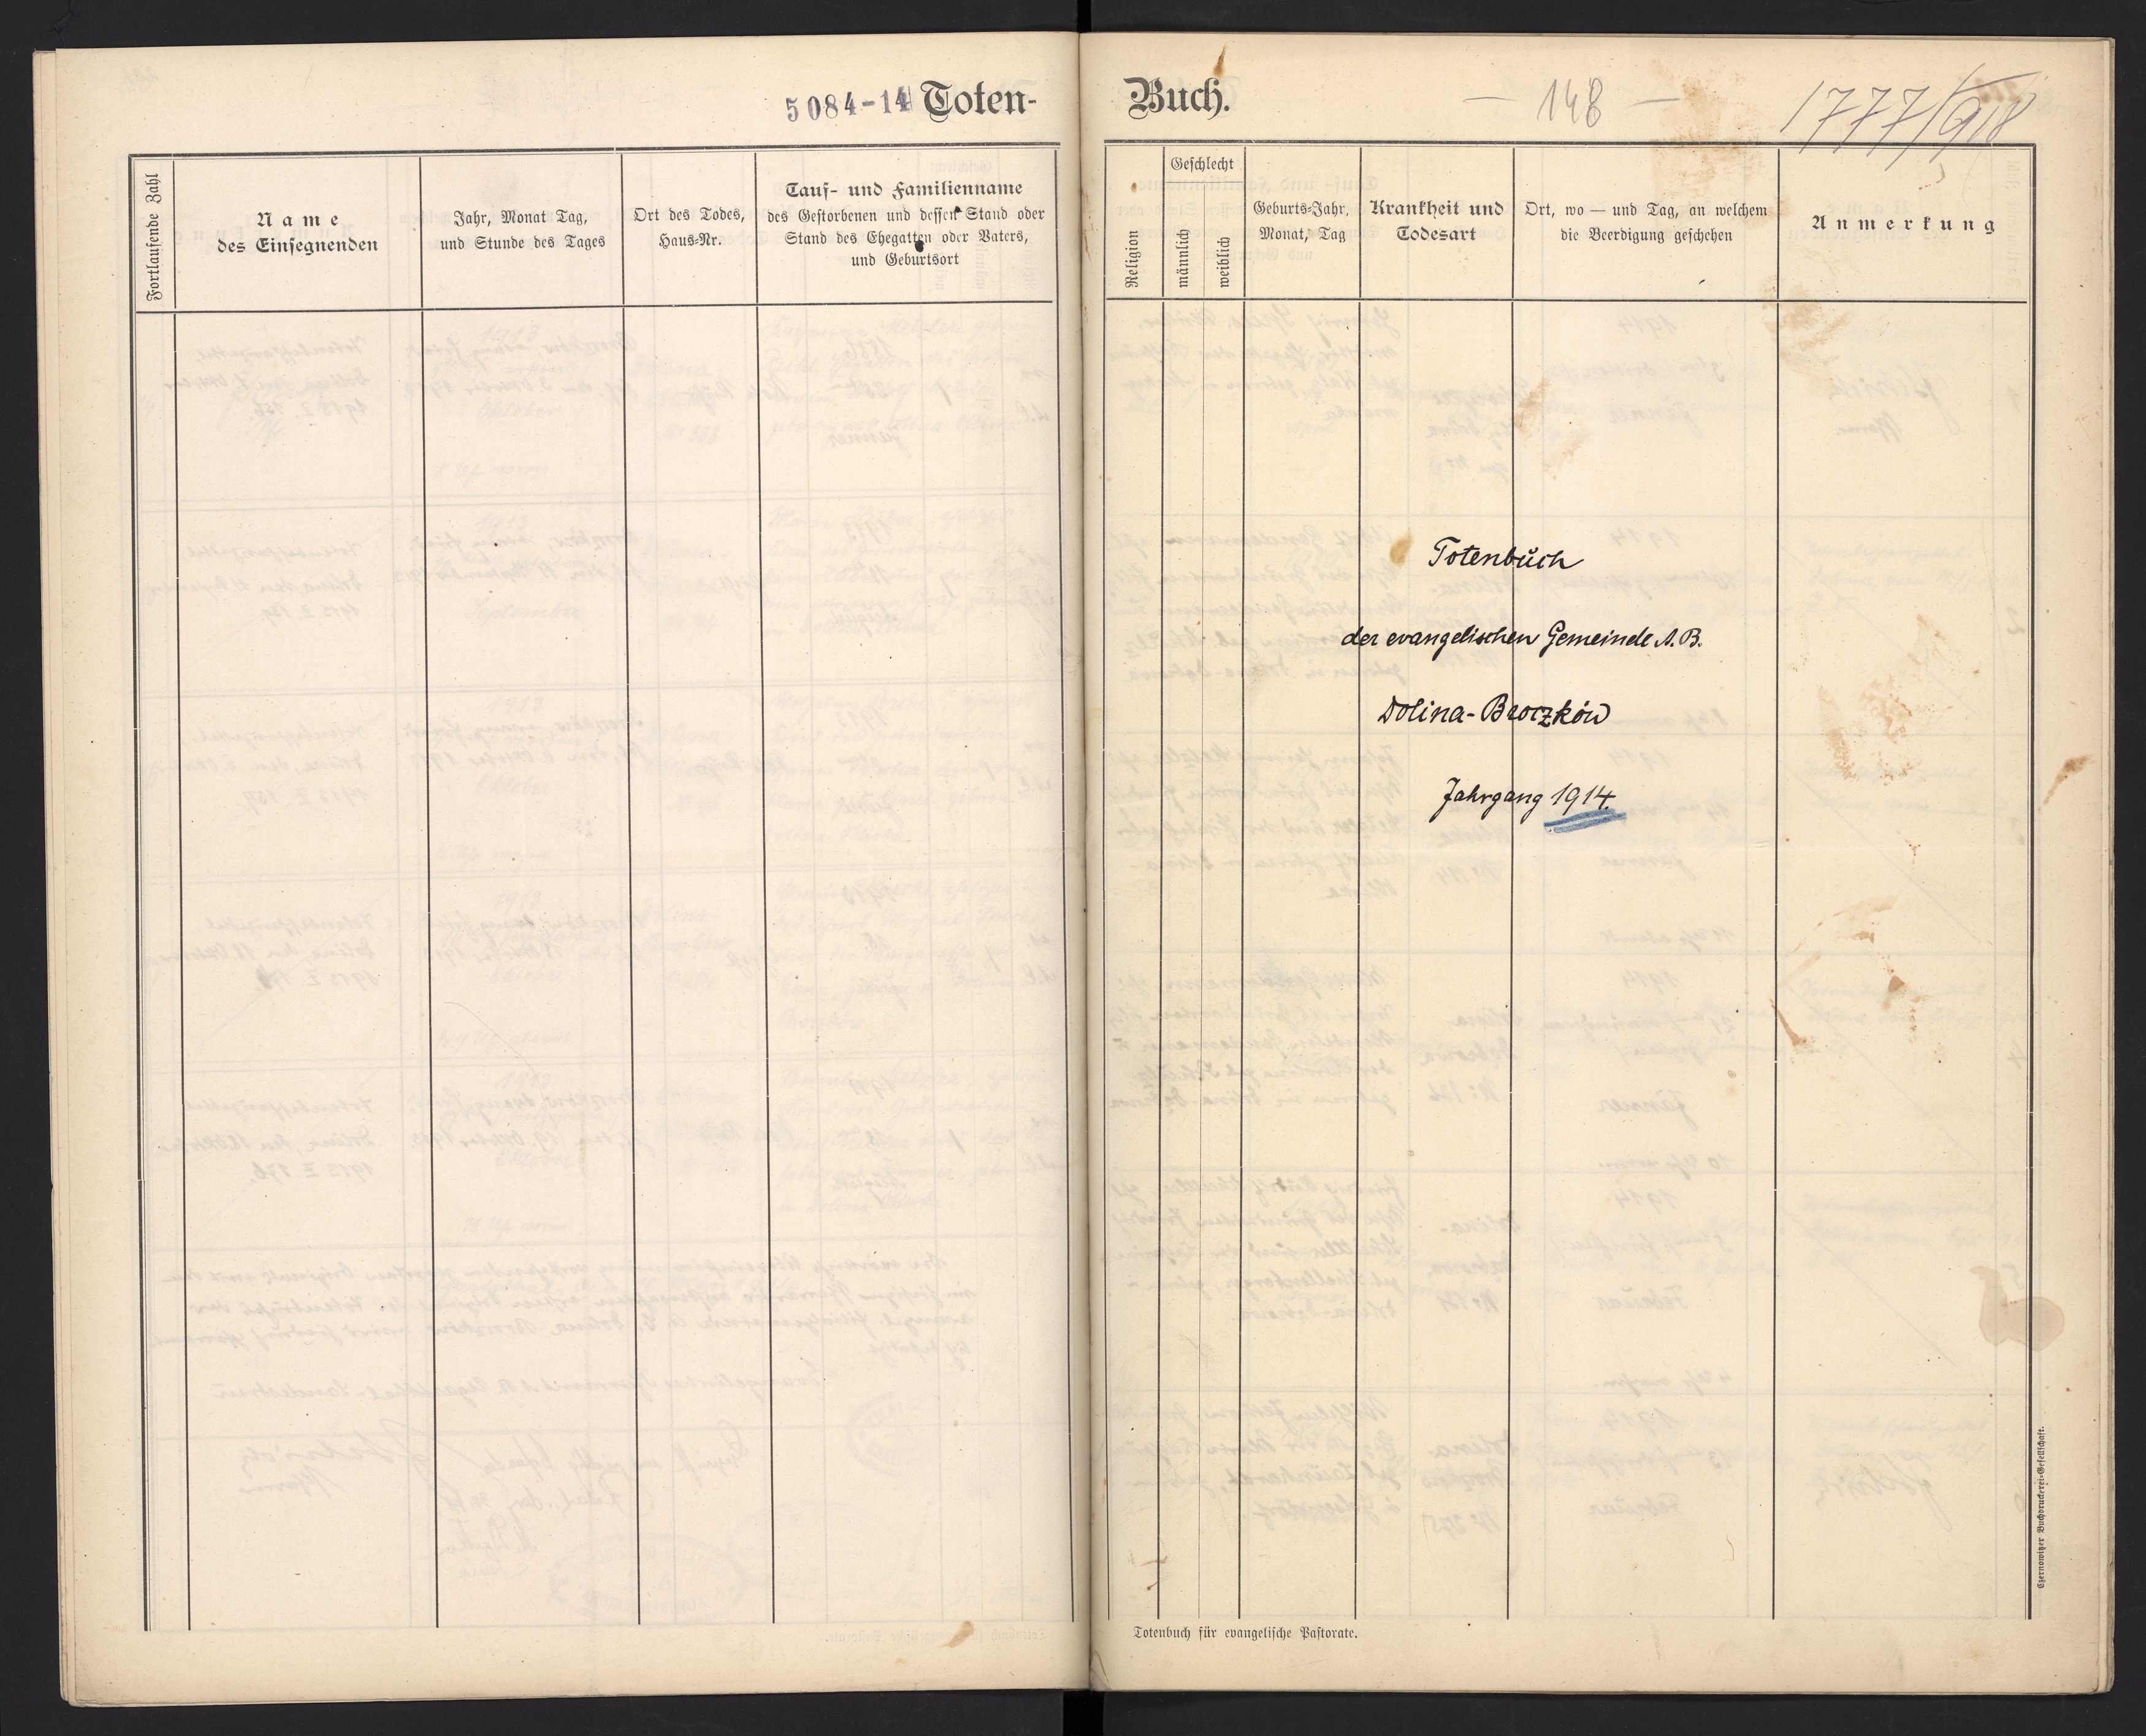 5084-14 Toten-
Fortlaufende Zahl
Name
des Einsegnenden
Jahr, Monat Tag,
und Stunde des Tages
Ort des Todes,
Haus-Nr.
Tauf- und Familienname
des Gestorbenen und dessen Stand oder
Stand des Ehegatten oder Vaters,
und Geburtsort
Buch.
— 148 —
1777/918
Religion
Geschlecht
männlich
weiblich
Geburts-Jahr,
Monat, Tag
Krankheit und
Todesart
Ort, wo — und Tag, an welchem
die Beerdigung geschehen
Anmerkung
Totenbuch
der evangelischen Gemeinde A. B.
Dolina-Broczków
Jahrgang 1914.
Totenbuch für evangelische Pastorate.
Czernowitzer Buchdruckerei-Gesellschaft.